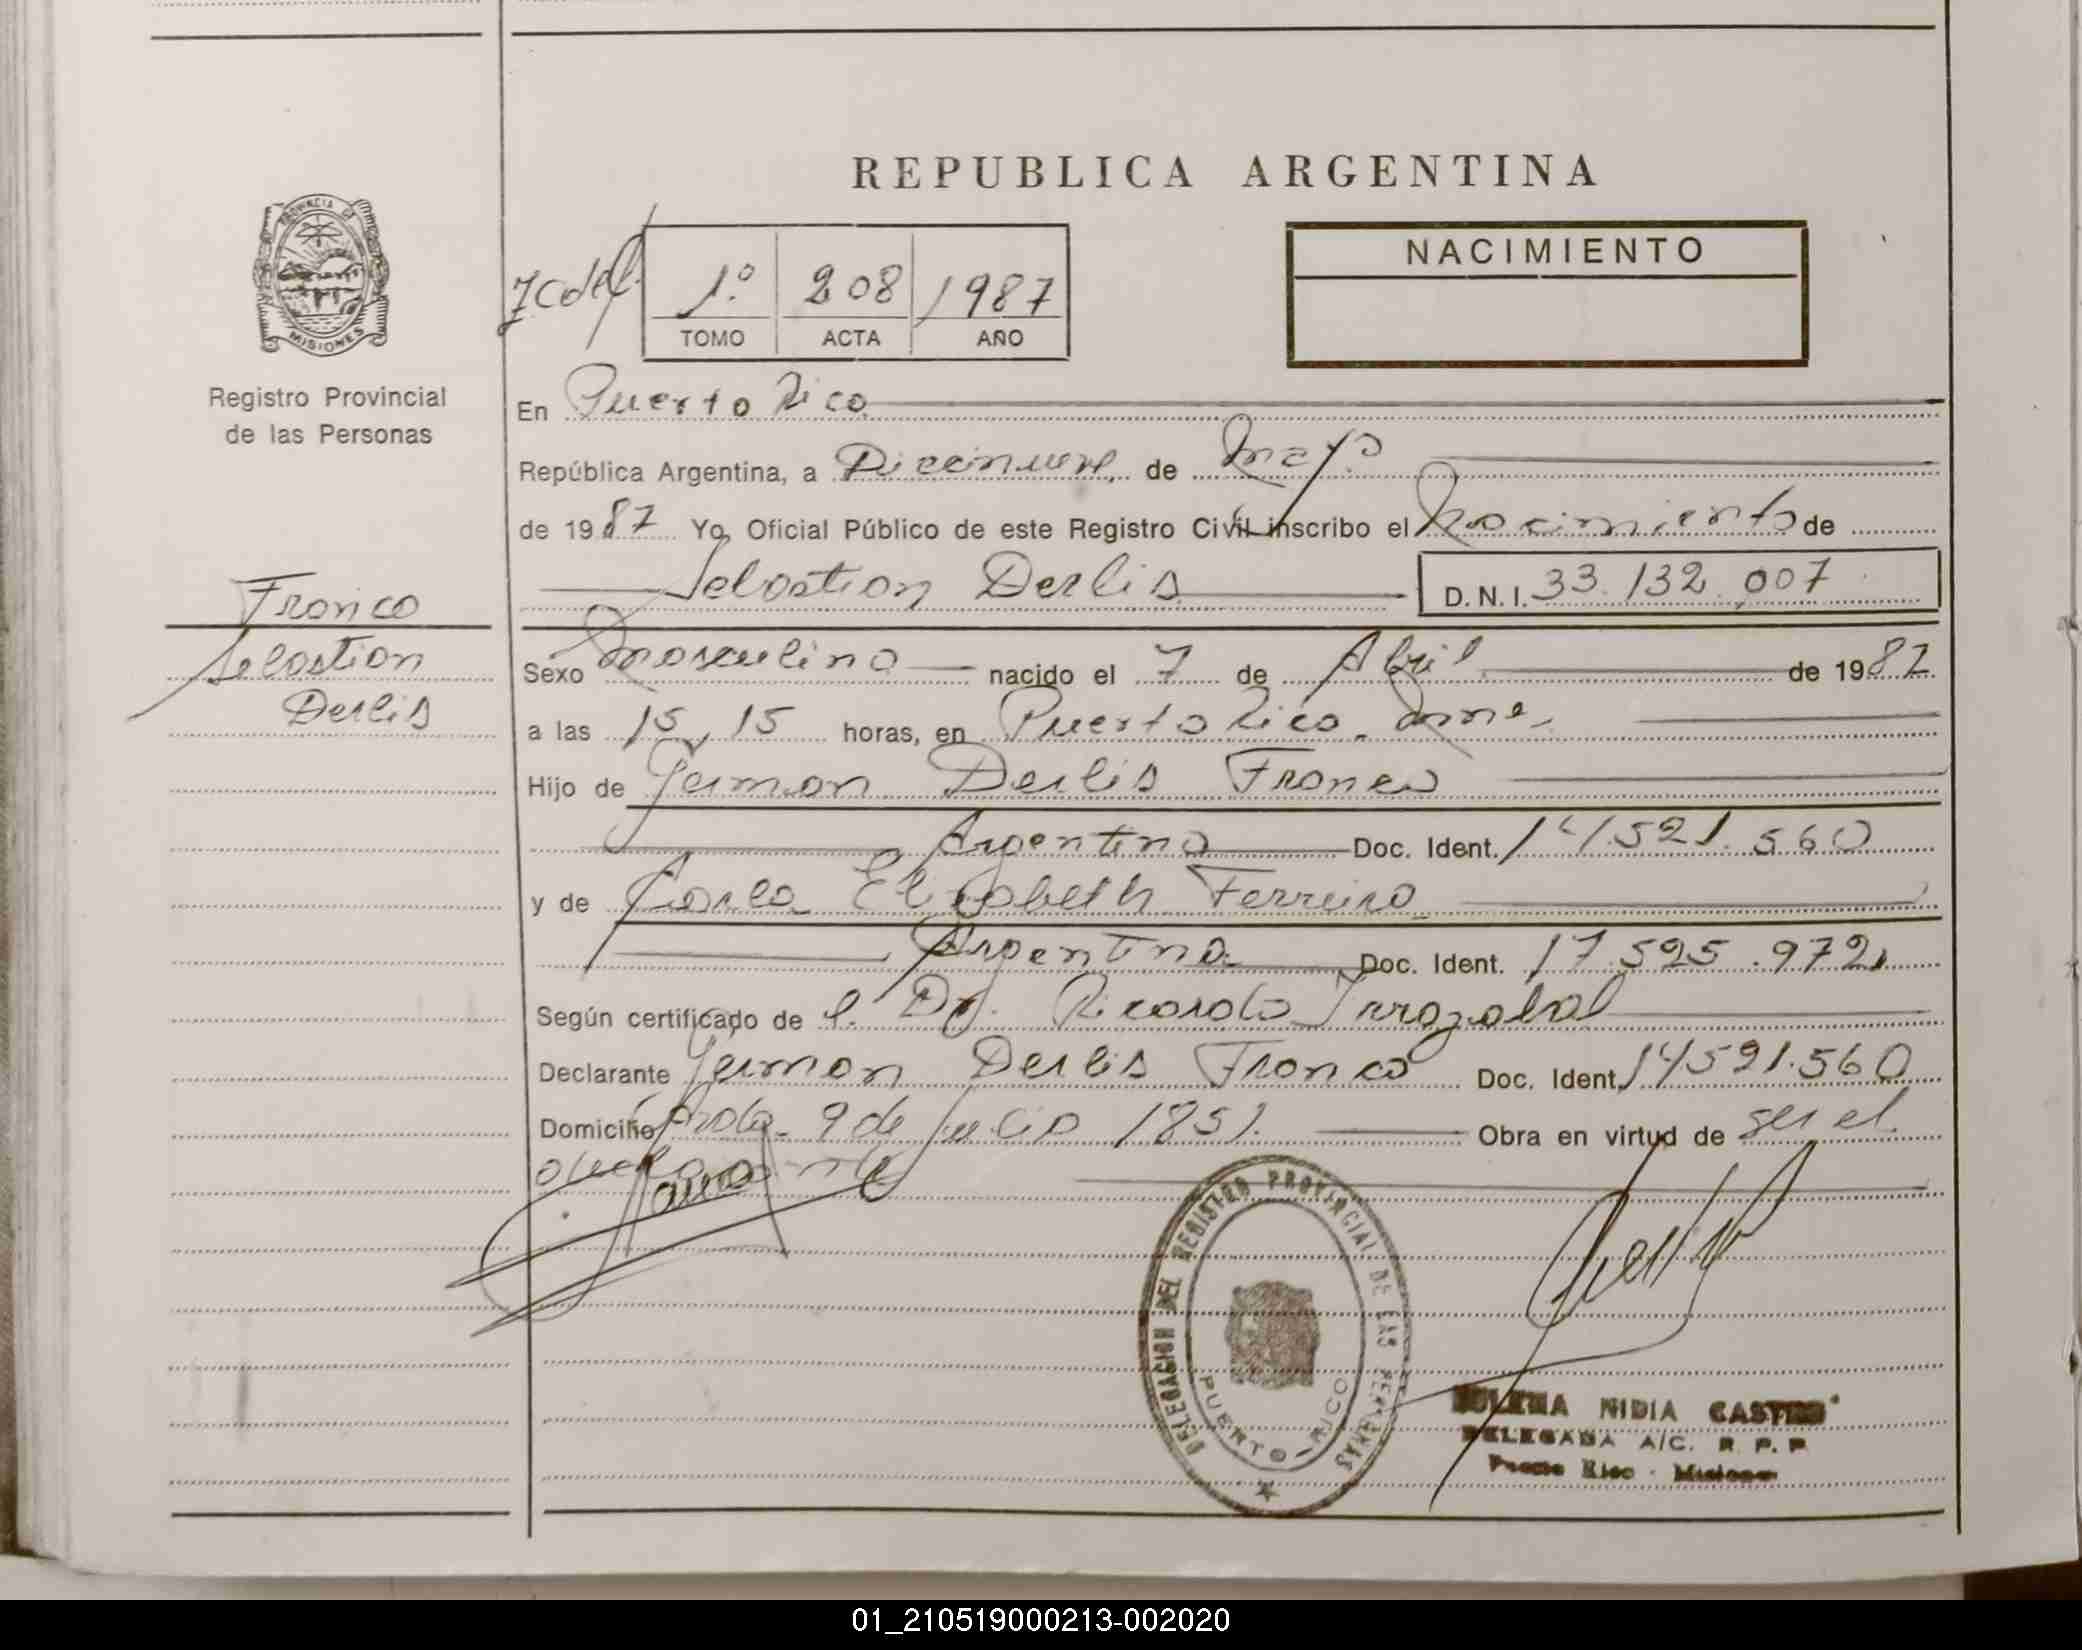 REPUBLICA ARGENTINA
PROVINCIA DE
MISIONES
Registro Provincial
de las Personas
1º 208 1987
TOMO ACTA AÑO
NACIMIENTO
En Puerto Rico
República Argentina, a Diecinueve de Mayo
de 1987 Yo, Oficial Público de este Registro Civil inscribo el Nacimiento de
Sebastian Derlis D.N.I. 33.132.007
Franco
Sebastian
Derlis
Sexo Masculino nacido el 7 de Abril de 1987
a las 15,15 horas, en Puerto Rico. Mnes.
Hijo de German Derlis Franco
Argentino Doc. Ident. 14.521.560
y de Carla Elizabeth Ferreira
Argentina Doc. Ident. 17.525.972
Según certificado de Dr. Ricardo Irrazabal
Declarante German Derlis Franco Doc. Ident. 14521.560
Domicilio Avda. 9 de Julio 1851. Obra en virtud de ser el
DELEGACION DEL REGISTRO PROVINCIAL DE LAS PERSONAS
PUERTO-RICO
NIDIA CASTRO
DELEGADA A/C. R. P. P.
Puerto Rico - Misiones
01_210519000213-002020